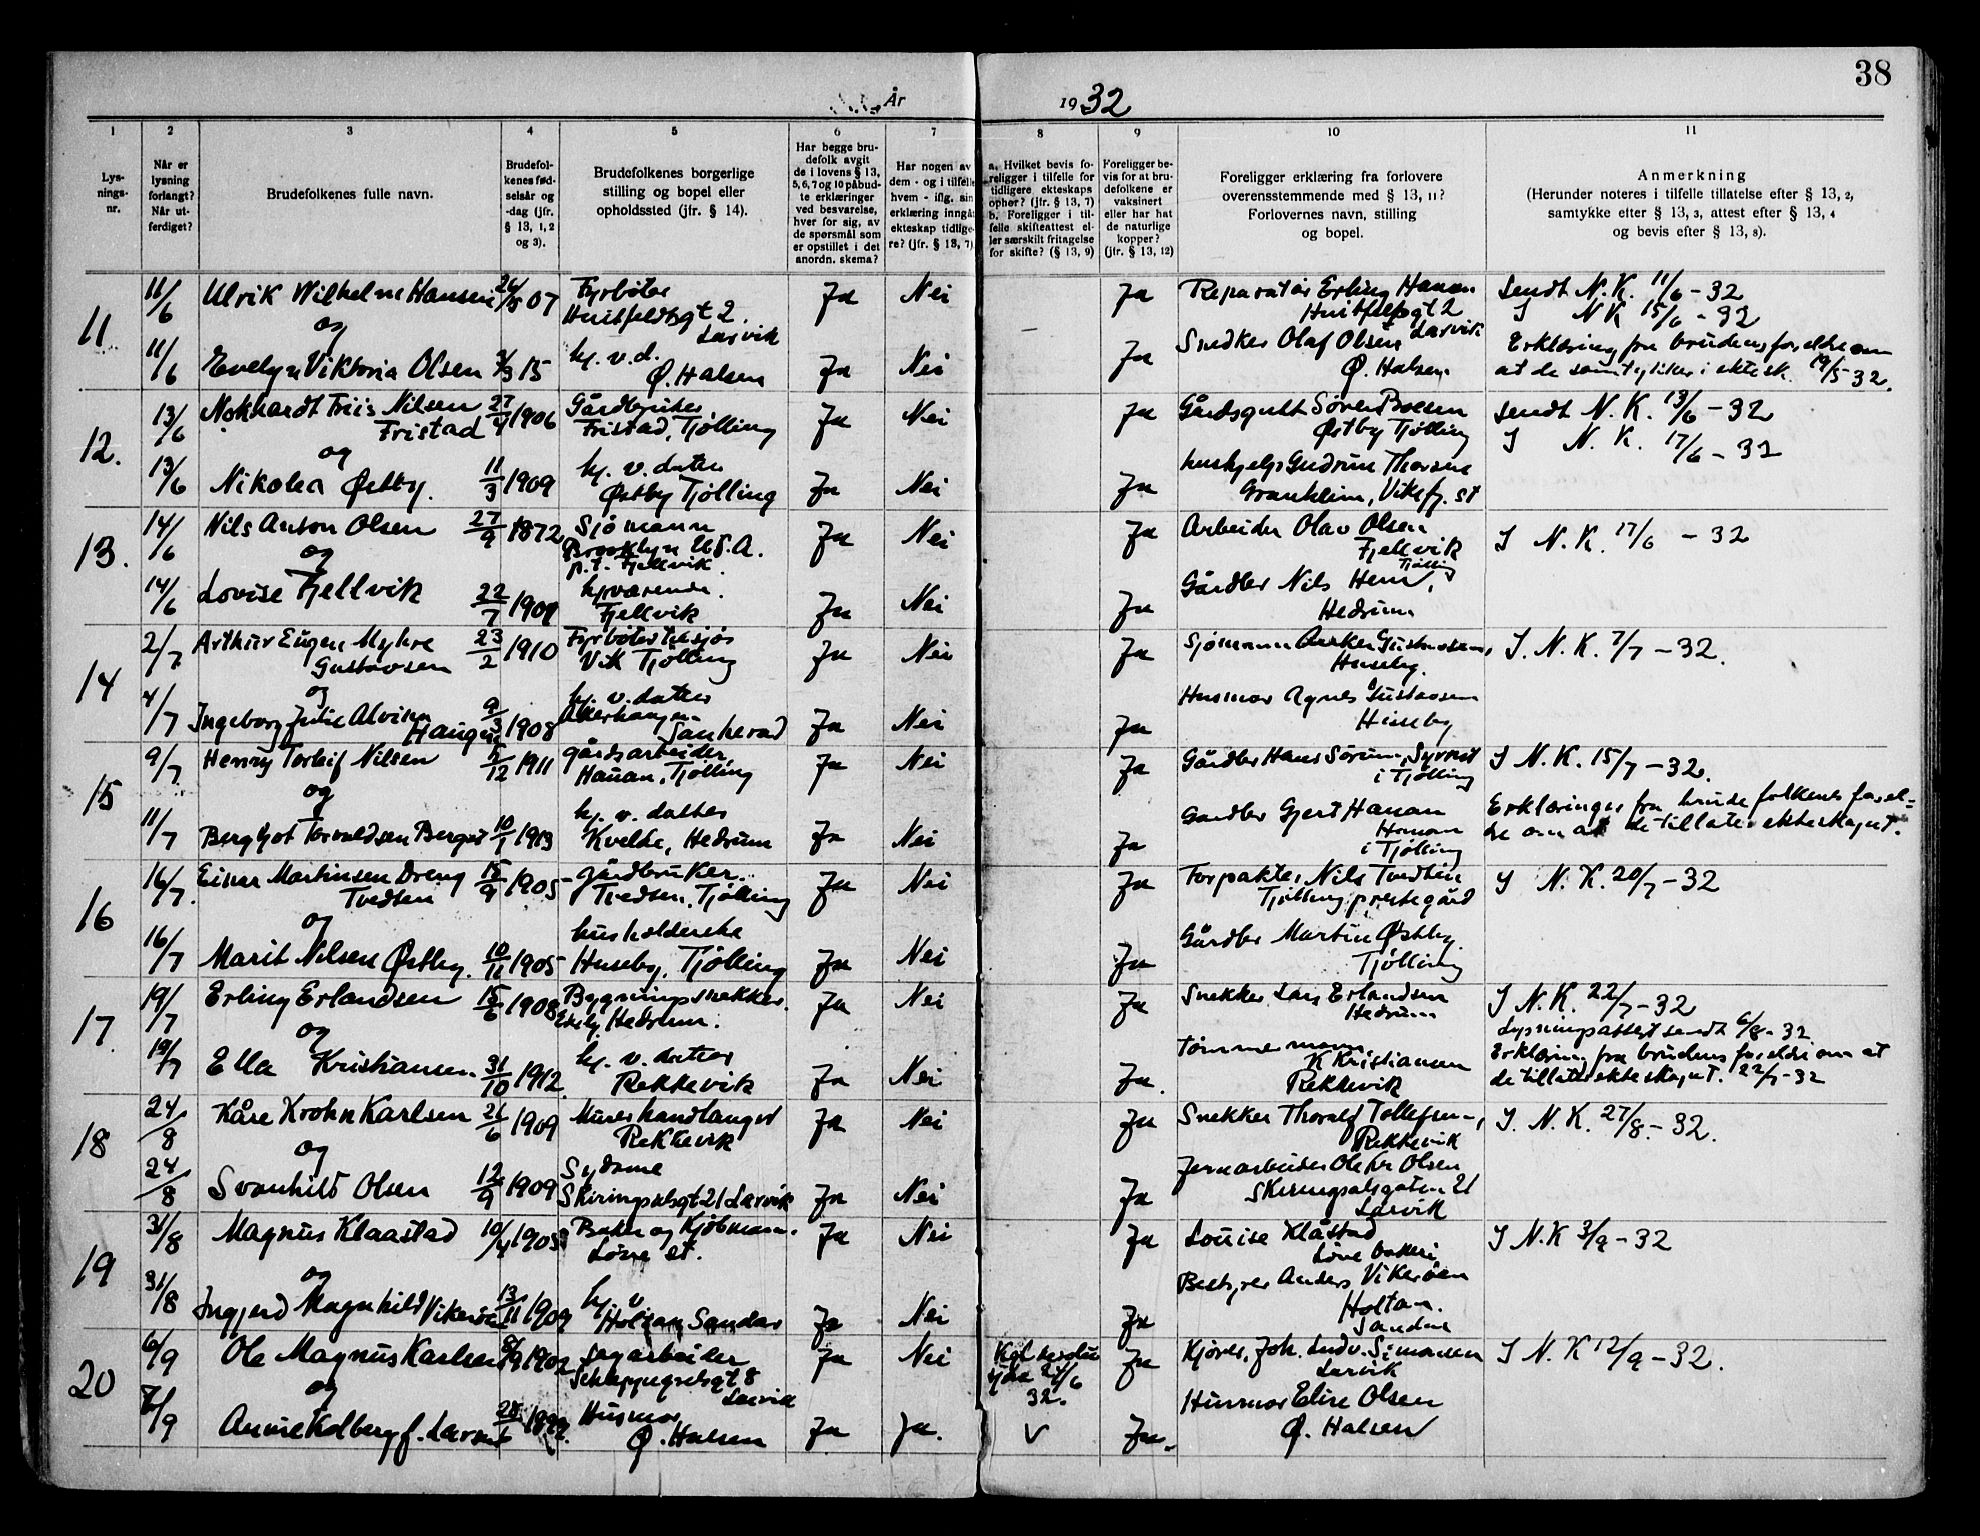 38
År 1932
1 2 3 4 5 6 7 8 9 10 11
Lys-
nings-
nr.
Når er
lysning
forlangt?
Når ut-
ferdiget?
Brudefolkenes fulle navn.
Brudefol-
kenes fød-
selsår og
-dag (jfr.
§ 13, 1, 2
og 3).
Brudefolkenes borgerlige
stilling og bopel eller
opholdssted (jfr. § 14).
Har begge bru-
defolk avgit
de i lovens § 13,
5, 6, 7 og 10 påbud-
te erklæringer
ved besvarelse,
hver for sig, av
de spørsmål som
er opstillet i det
anordn. skema?
Har nogen av
dem - og i tilfelle
hvem - iflg. sin
erklæring inngått
ekteskap tidlige-
re? (jfr. § 13, 7)
a. Hvilket bevis fo-
religger i tilfelle for
tidligere ekteskaps
ophør? (jfr. § 13, 7)
b. Foreligger i til-
felle skifteattest el-
ler særskilt fritagelse
for skifte? (§ 13, 9)
Foreligger be-
vis for at bru-
defolkene er
vaksinert
eller har hat
de naturlige
kopper?
(jfr. § 13, 12)
Foreligger erklæring fra forlovere
overensstemmende med § 13, 11?
Forlovernes navn, stilling
og bopel.
Anmerkning
(Herunder noteres i tilfelle tillatelse efter § 13, 2,
samtykke efter § 13, 3, attest efter § 13, 4
og bevis efter § 13, 8).
11
11/6 Ulrik Wilhelm Hansen 07 Fyrbøter Ja Nei Ja Reparatør Erling Hanson sendt N. K. 11/6 - 32
og Huitfeldtsgt 2. Larvik Huitfeldtsgt 2 Larvik N K 15/6 - 32
11/6 Evelyn Viktoria Olsen 15 hj. v. d. Ja Nei Ja Snedker Olaf Olsen Erklæring fra brudens foreldre om
Ø. Halsen Ø. Halsen at de samtykker i ektesk. 19/5-32.
12.
13/6 Friis Nilsen 27/4 1906 Gårdbruker Ja Nei Ja Gårdsgutt Søren sendt N. K. 13/6 - 32
Fristad Fristad, Tjølling Østby Tjølling N. K. 17/6 - 32
og
13/6 Nikolea Østby. 11/3 1909 hj. v. datter Ja Nei Ja Gudrun
Østby Tjølling
13.
14/6 Nils Anton Olsen 27/9 1872 Sjømann Ja Nei Ja Arbeider Olav Olsen N. K. 17/6 - 32
og Brooklyn U.S.A. Fjellvik
p.t. Fjellvik. Tjølling
14/6 Lovise Fjellvik 22/7 hjværende. Ja Nei Ja Gårdbr Nils Hem,
Fjellvik Hedrum
14
2/7 Arthur Eugen Myhre 23/2 1910 Fyrbøter Ja Nei Ja Sjømann Gustavsen, N. K. 7/7 - 32.
Gustavsen Vik Tjølling Huseby.
og hj. v. datter Husmor Agnes Gustavsen
4/7 Ingeborg Julie 1908 Ja Nei Ja Huseby
15
9/7 Henry Torleif Nilsen 5/12 1911 gårdsarbeider Ja Nei Ja Gårdbr Hans N. K. 15/7 - 32.
Hauan, Tjølling i Tjølling
og hj. v. datter Gardbr Gjert Hauan Erklæringer fra brudefolkenes forel-
11/7 Bergljot Torvaldsen 1913 Kvelde, Hedrum Ja Nei Ja i Tjølling dre om at de tillater ekteskapet.
16
16/7. Einar Martinsen Dreng 15/9 1905 gårdbruker. Ja Nei Ja Forpakter Nils Tvedten N. K. 20/7 - 32
Tvedten Tvedten, Tjølling Tjølling prestegård
og husholderske Gårdbr Martin Østby.
16/7 Marit Nilsen Østby. 10/11 1905 Huseby, Tjølling Ja Nei Ja Tjølling
17.
19/7 Erling Erlandsen 15/6 1908 Bygningssnekker Ja Nei Ja Snekker Lars Erlandsen N. K. 22/7 - 32
og Hedrum. Hedrum Lysningsattest sendt 6/8 - 32
19/7 Ella Kristiansen. 31/10 1912 hj. v. datter Ja Nei Ja. Tømmermann Erklæring fra brudens foreldre om at
Rekkevik K Kristiansen de tillater ekteskapet. 22/7 - 32
Rekkevik
18
24/8 Kåre Krohn Karlsen 21/6 1909 Murerhandlanger Ja Nei Ja Snekker Thoralf Tollefsen, N. K. 27/8 - 32.
og Rekkevik Rekkevik
24/8 Svanhild Olsen 12/9 1909 Sydame Ja Nei Ja Jernarbeider Ole Kr Olsen
Skiringsalsgt 21 Larvik Skiringsalsgaten 21
Larvik
19
31/8 Magnus Klaastad 10/4 Baker og Kjøbmann. Ja Nei Ja Louise Klåstad N. K 3/9 - 32
og Løve st. Løve bakeri
31/8 Ingjerd Magnhild 13/11 hj. v. Ja Nei Ja Bestyrer Anders Vikerøen
Sandar Holtan.
Sandar
20
6/9 Ole Magnus Karlsen 1902 Ja Nei Ja Kjører, Joh. Ludv. Simonsen N. K 12/9 - 32.
og Larvik 32. Larvik
7/9 Anne Kolberg f. 28/6 Husmor Ja Ja. v Ja. Husmor Elise Olsen
Ø. Halsen Ø. Halsen